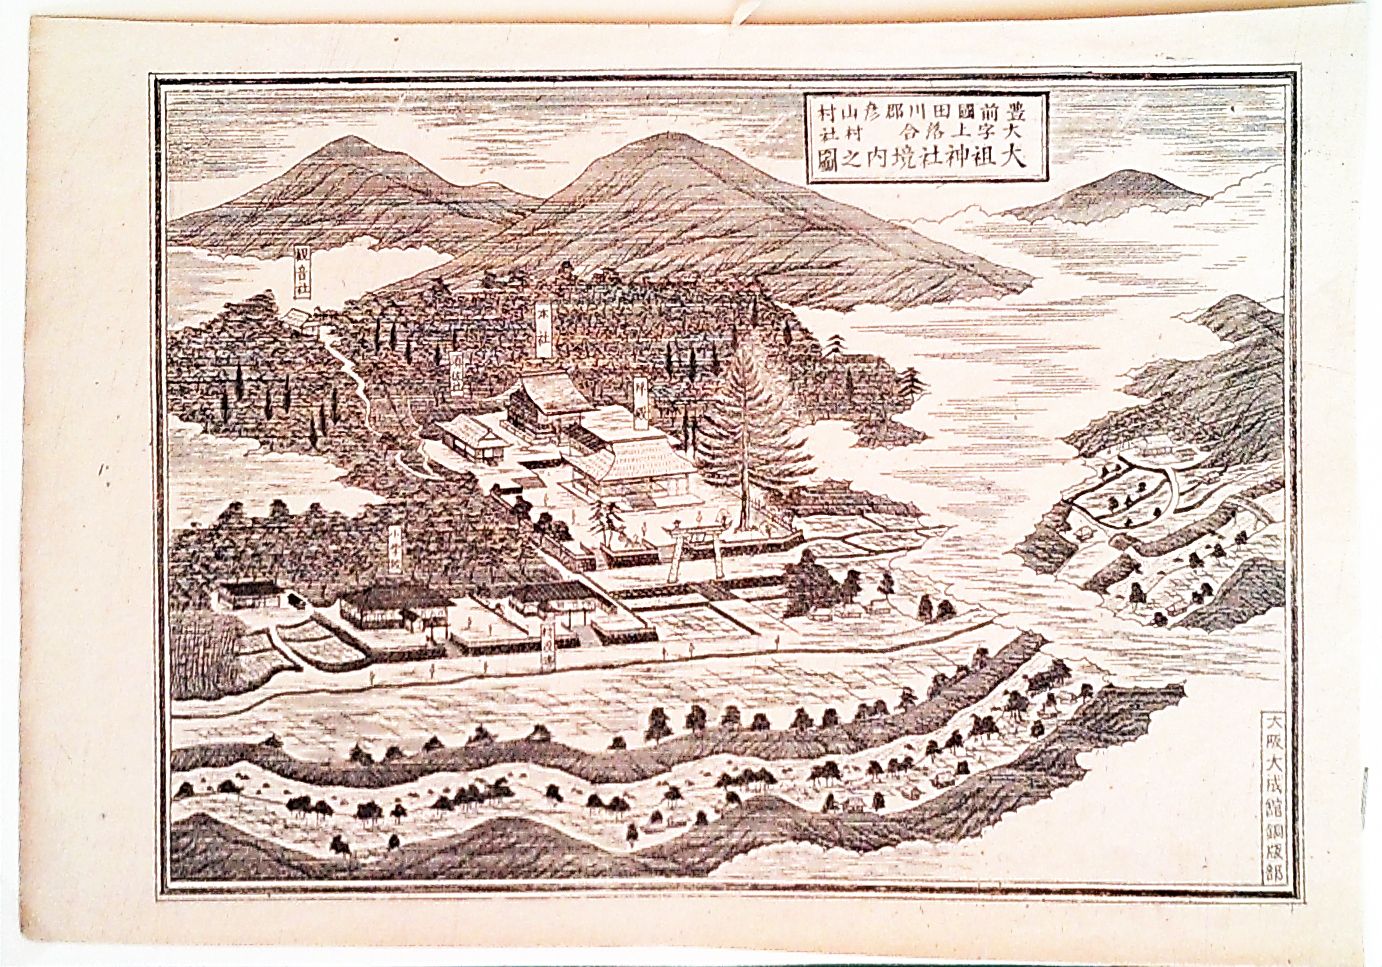 豊前國田川郡彦山村
大字上落合村社
大祖神社境内之圖
観音社
本社
大阪大成館銅版部